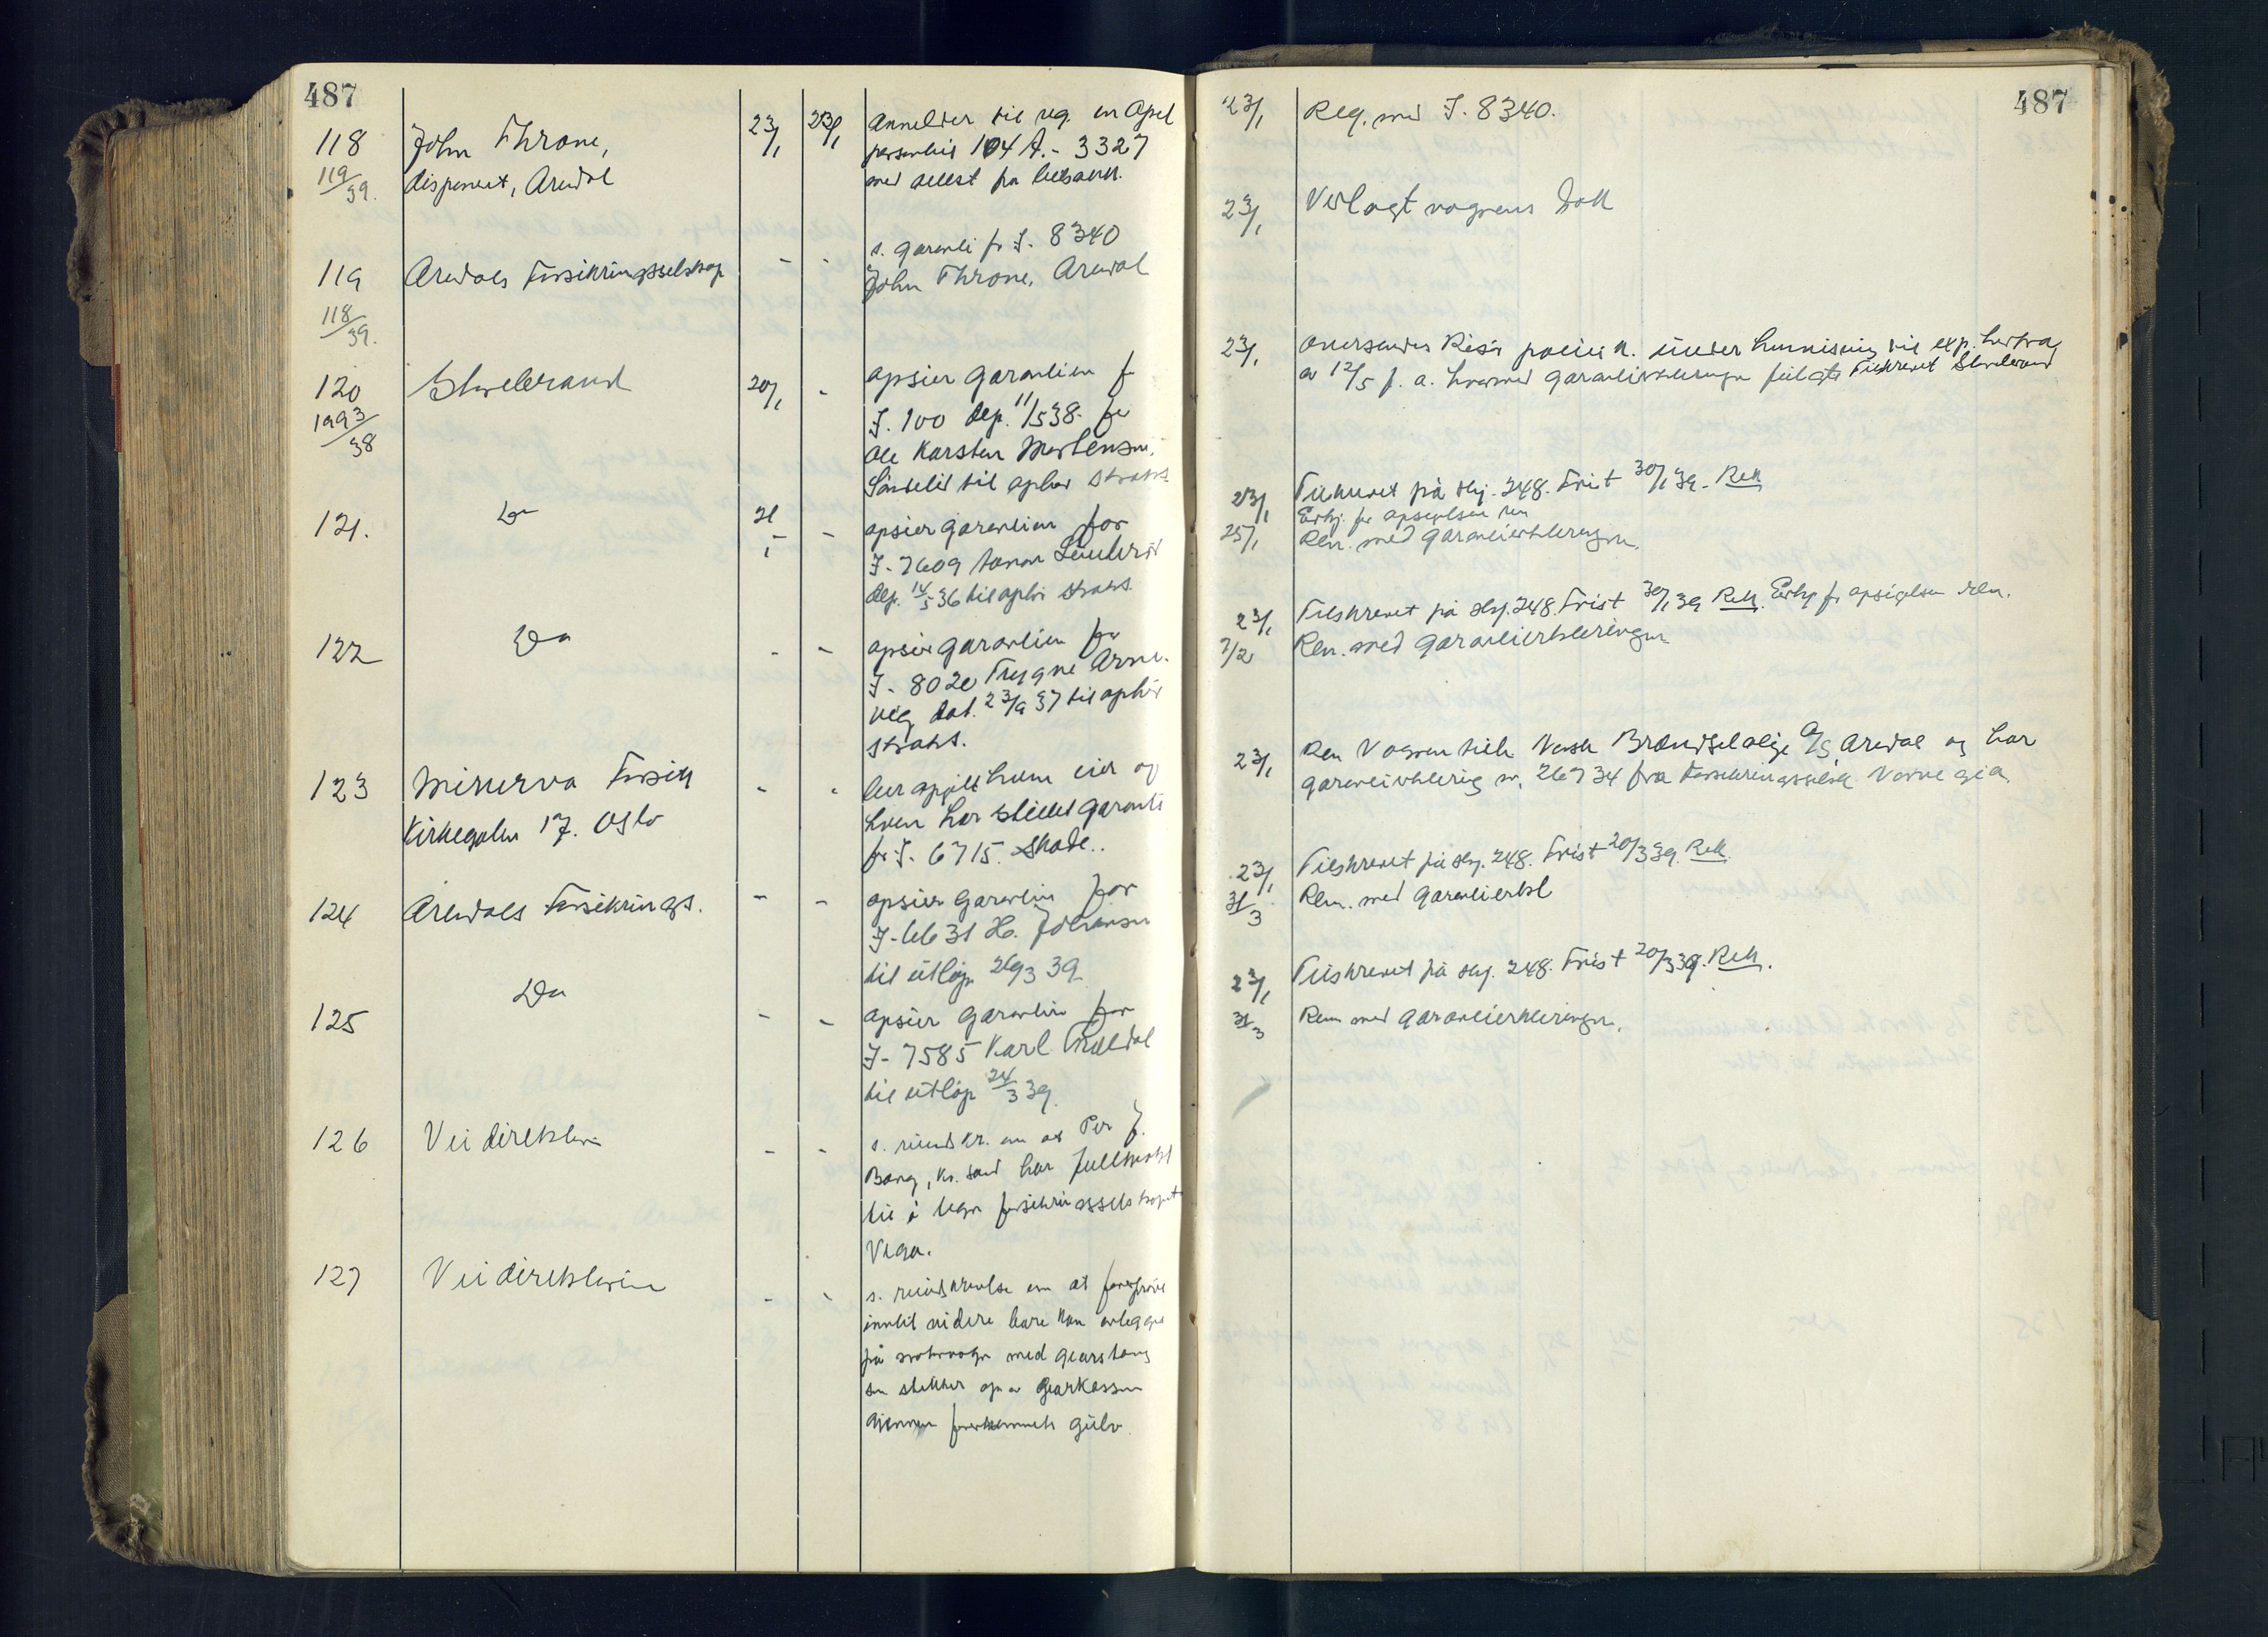 487
118 John Throne, 23/1 23/1 Anmelder til reg. en Opel
119/39. disponent, Arendal personbil 104 A.- 3327
med attest fra
s. garanti for I. 8340
119 Arendals Forsikringsselskap - - John Throne, Arendal
118/39.
120 Storebrand 20/1 - opsier garantien f
1993/38 I. 100 dep. 11/5 38. for
Ole Karsten Mortensen.
til ophør straks
121. Do 21/1 - opsier garantien for
I- 7609
dep. 14/5 36 til ophør straks.
122 Do - - opsier garantien for
I- 8020 Trygve Arne.
dat. 23/9 37 til ophør
straks.
123 Minerva Forsik - - ber opgitt hvem eier og
Kirkegaten 17. Oslo hvem har stillet garanti
for I- 6715. skade..
124 Arendals Forsikrings. - - opsier garantien for
I- 6631 H. Johansen
til utløp 26/3 39
125 Do - - opsier garantien for
I- 7585 Karl
til utløp 24/3 39.
126 Veidirektøren - - s. rundskr. om at Per J.
Bang, Kr.sand har fullmakt
til å tegne forsikringsselskapet
Vega.
127 Veidirektøren - - s. rundskrivelse om at førerprøve
inntil videre bare kan avlegges
på motorvogn med gearstang
som stikker op av gearkassen
gjennem førerrummets gulv.
487
23/1 Reg. med I. 8340.
23/1 Vedlagt vognens
23/1 Oversendes Risør politik. under henvisning til exp. herfra
av 12/5 f. a. hvormed garantierklæringen fulgte Tilskrevet Storebrand
23/1 Tilskrevet på skj. 248. Frist 30/1 39. Rek
Erkj. for opsigelsen
25/1 Retur. med garantierklæringen.
23/1 Tilskrevet på skj. 248. Frist 30/1 39 Rek. Erkj. for opsigelsen retur.
7/2 Retur. med garantierklæringen
23/1 Retur Vognen tilh. Norsk Brændselolje A/S, Arendal og har
garantierklæring nr. 26734 fra Forsikringsselsk Norvegia.
23/1 Tilskrevet på skj. 248. Frist 20/3 39. Rek.
31/3 Retur. med garantierkl
23/1 Tilskrevet på skj. 248. Frist 20/3 39. Rek.
31/3 Retur med garantierklæringen.